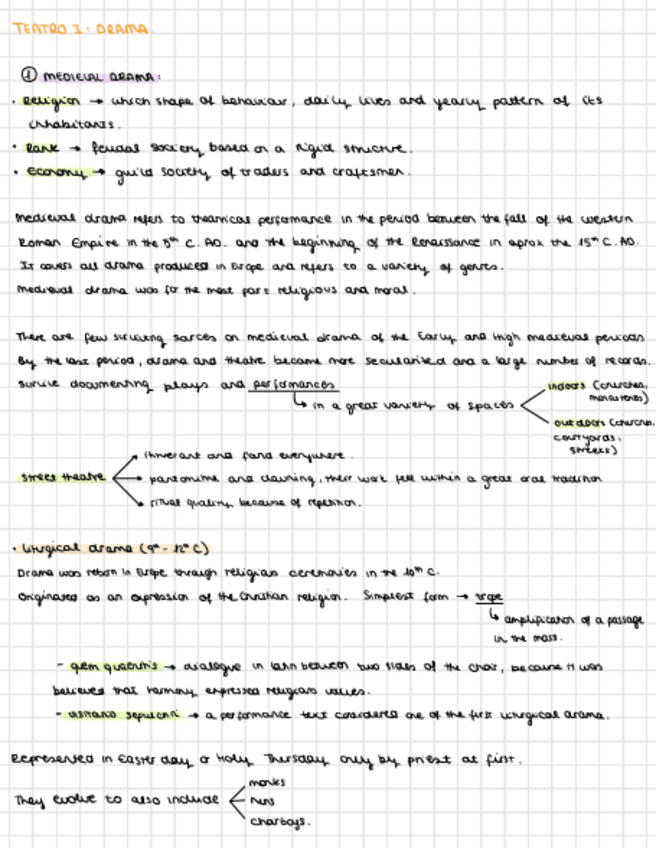 TEATRO I: DRAMA.
① MEDIEVAL DRAMA:
• Religion → which shape of behaviour, daily lives and yearly pattern of its
inhabitants.
• Rank → feudal society based on a rigid structure.
• Economy → guild society of traders and craftsmen.
Medieval drama refers to theatrical performance in the period between the fall of the western
Roman Empire in the 5th C. AD. and the beginning of the Renaissance in aprox the 15th C. AD.
It covers all drama produced in Europe and refers to a variety of genres.
Medieval drama was for the most part religious and moral.
There are few surviving sources on medieval drama of the Early and High medieval periods
By the last period, drama and theatre became more secularized and a large number of records.
survive documenting plays and performances
↳ in a great variety of spaces
indoors (churches,
monasteries)
outdoors (churches,
courtyards,
streets)
street theatre
itinerant and found everywhere.
pantomime and clowning, their work fell within a great oral tradition
ritual quality because of repetition.
• Liturgical drama (9th - 12th C)
Drama was reborn in Europe through religious ceremonies in the 10th C.
Originated as an expression of the Christian religion. Simplest form → trope
↳ amplification of a passage
in the mass.
- quem quaeritis → dialogue in latin between two sides of the choir, because it was
believed that harmony expressed religious values.
- visitatio sepulchri → a performance text considered one of the first liturgical drama.
Represented in Easter day or Holy Thursday only by priest at first.
They evolve to also include
monks
nuns
choirboys.